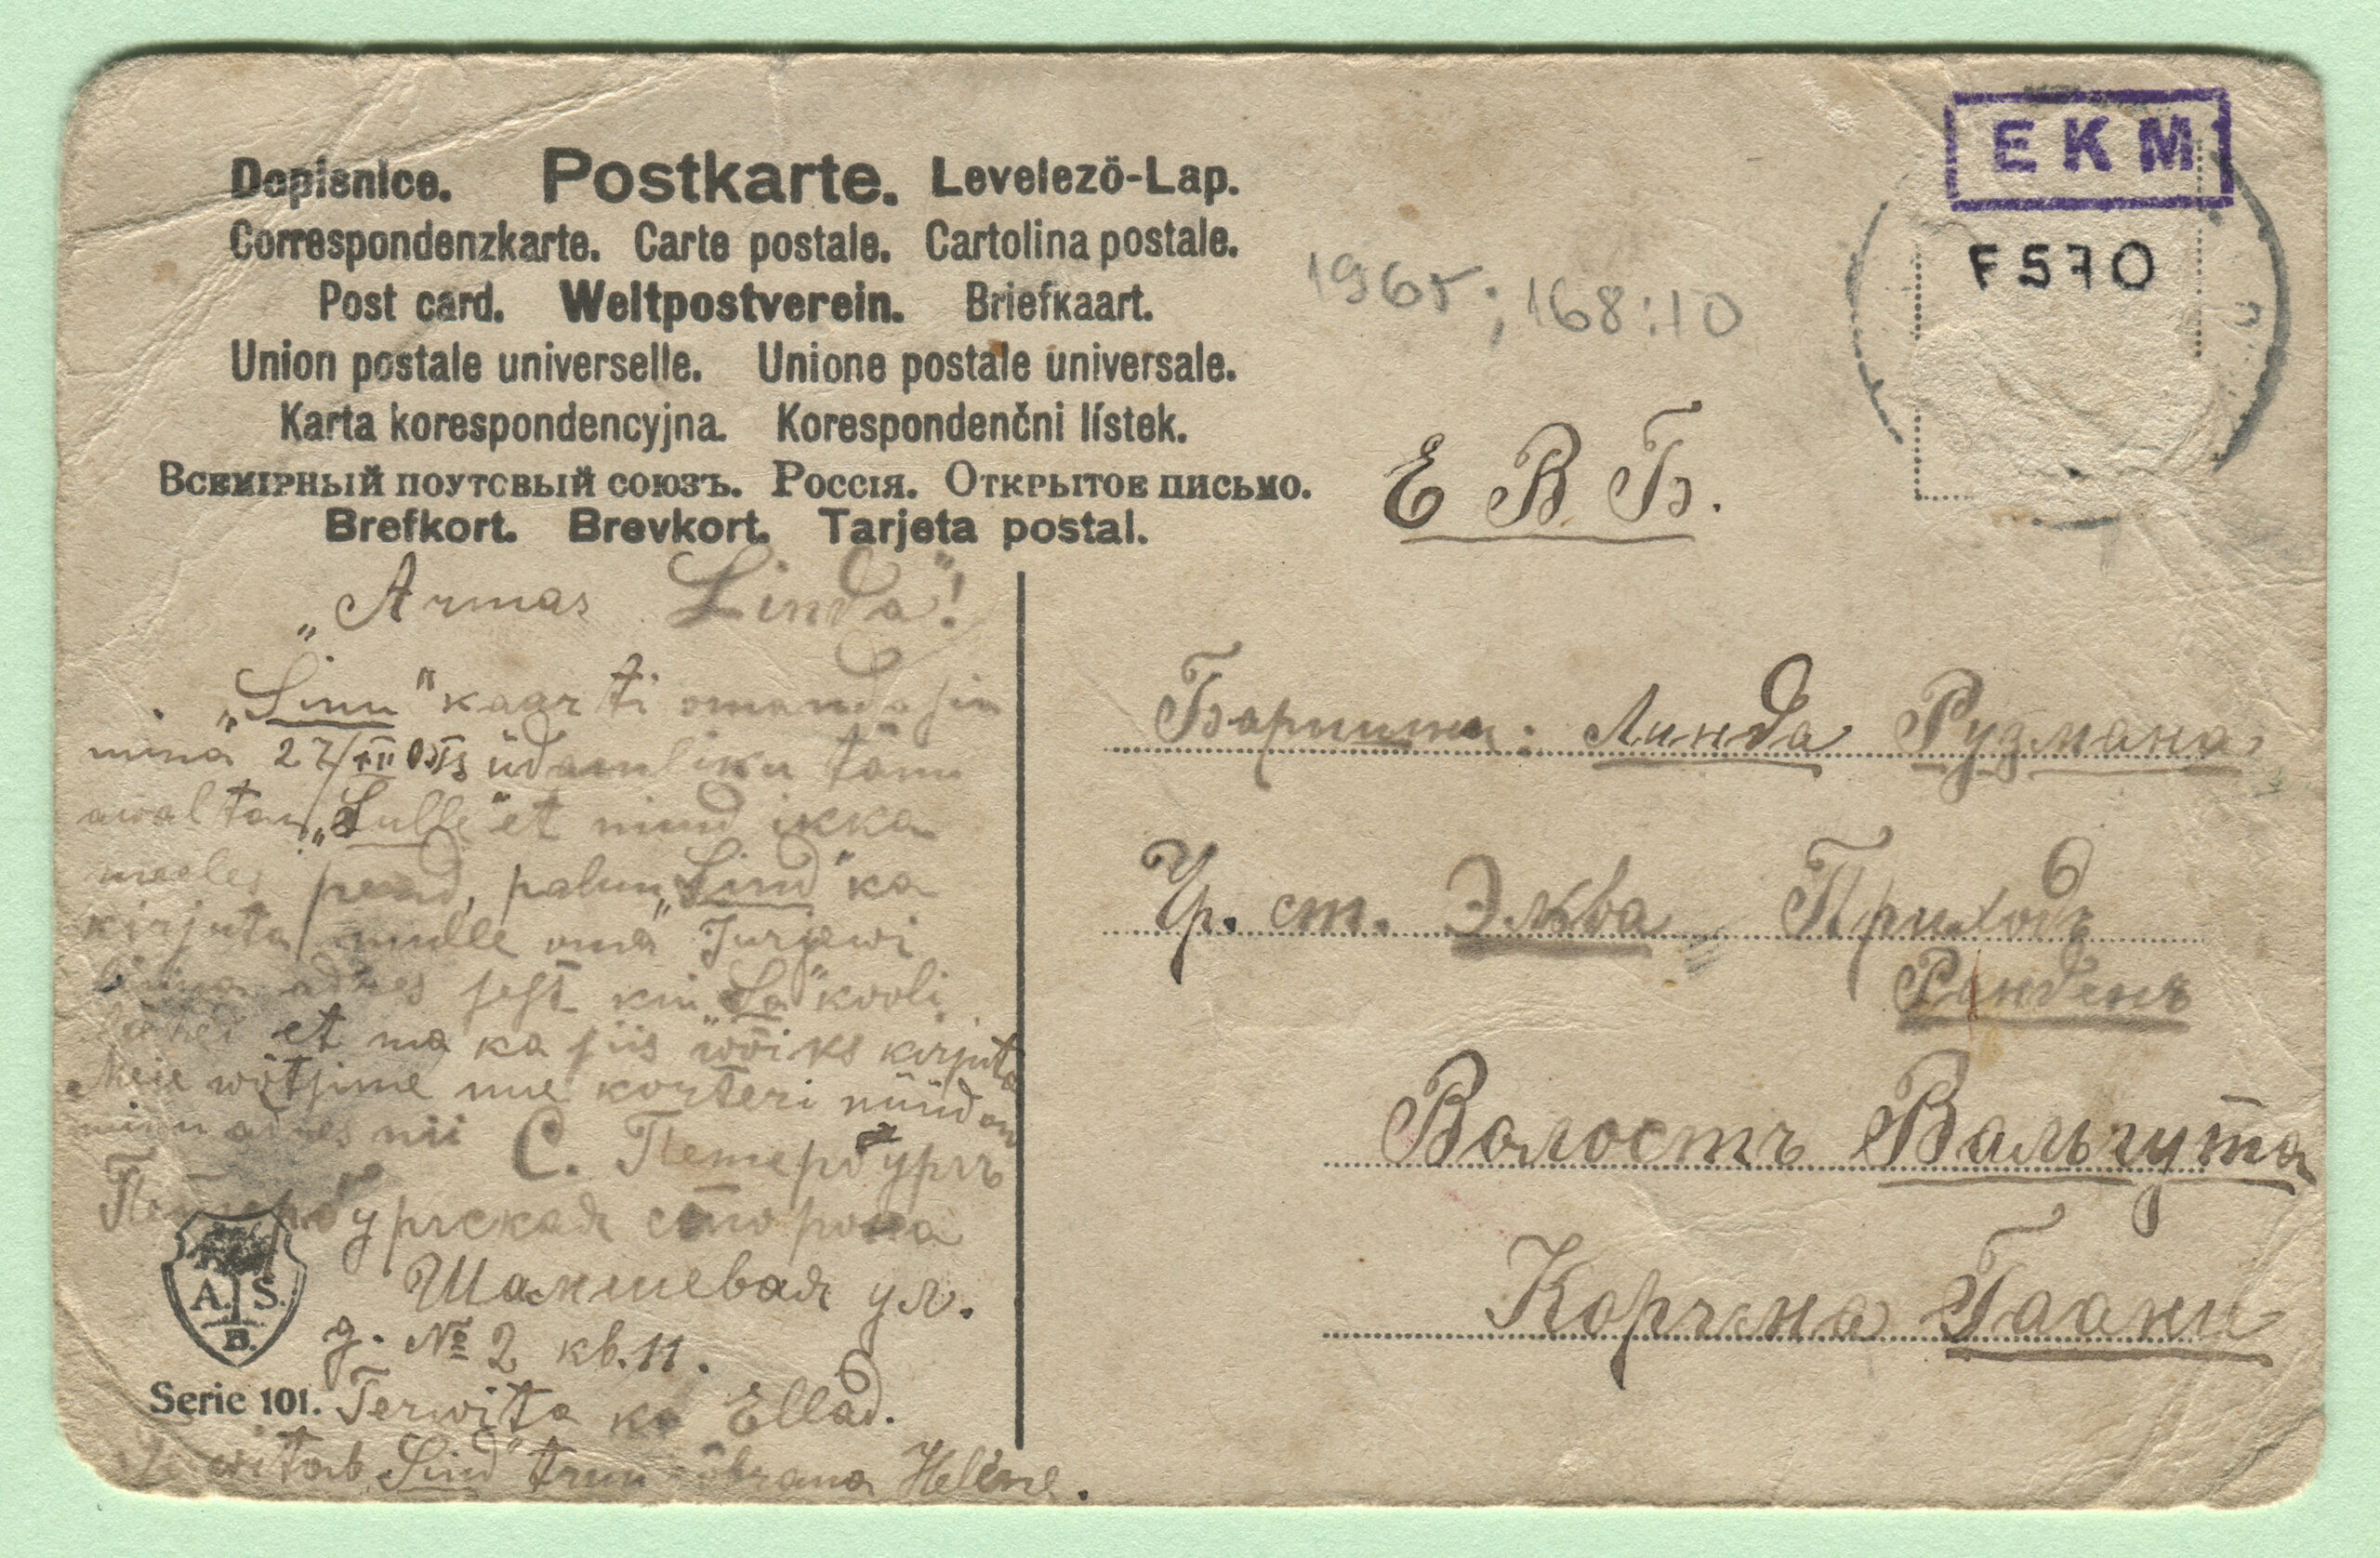 Dopisnice. Postkarte. Levelező-Lap.
Correspondenzkarte. Carte postale. Cartolina postale.
Post card. Weltpostverein. Briefkaart.
Union postale universelle. Unione postale universale.
Karta korespondencyjna. Korespondenčni lístek.
Всемірный поутовый союзъ. Россія. Открытое письмо.
Brefkort. Brevkort. Tarjeta postal.
EKM
F 570
1965; 168:10
Е В Б.
„Armas Linda"!
„Sinu" kaarti omandasin
mina 27/ südamliku tänu
awaltan „Sulle" et mind ikka
meeles pead, palun „Sind" ka
kirjuta mulle oma Jurjewi
linna adres sest kui „Sa" kooli
lähed et ma ka siis wõiks kirjuta
Meie wõtsime uue korteri nüüd on
minu adres nii С. Петербургъ
Петербургская сторона
Шамшевая ул.
д. № 2 кв. 11.
Terwita ka Ellad.
witab „Sind" truu sõbrana Helene.
A. S.
B.
Serie 101.
Барышня: Линда Рудмана
Чр. ст. Элва Приходъ
Ранденъ
Волость Вальгута
Корчма Гаани